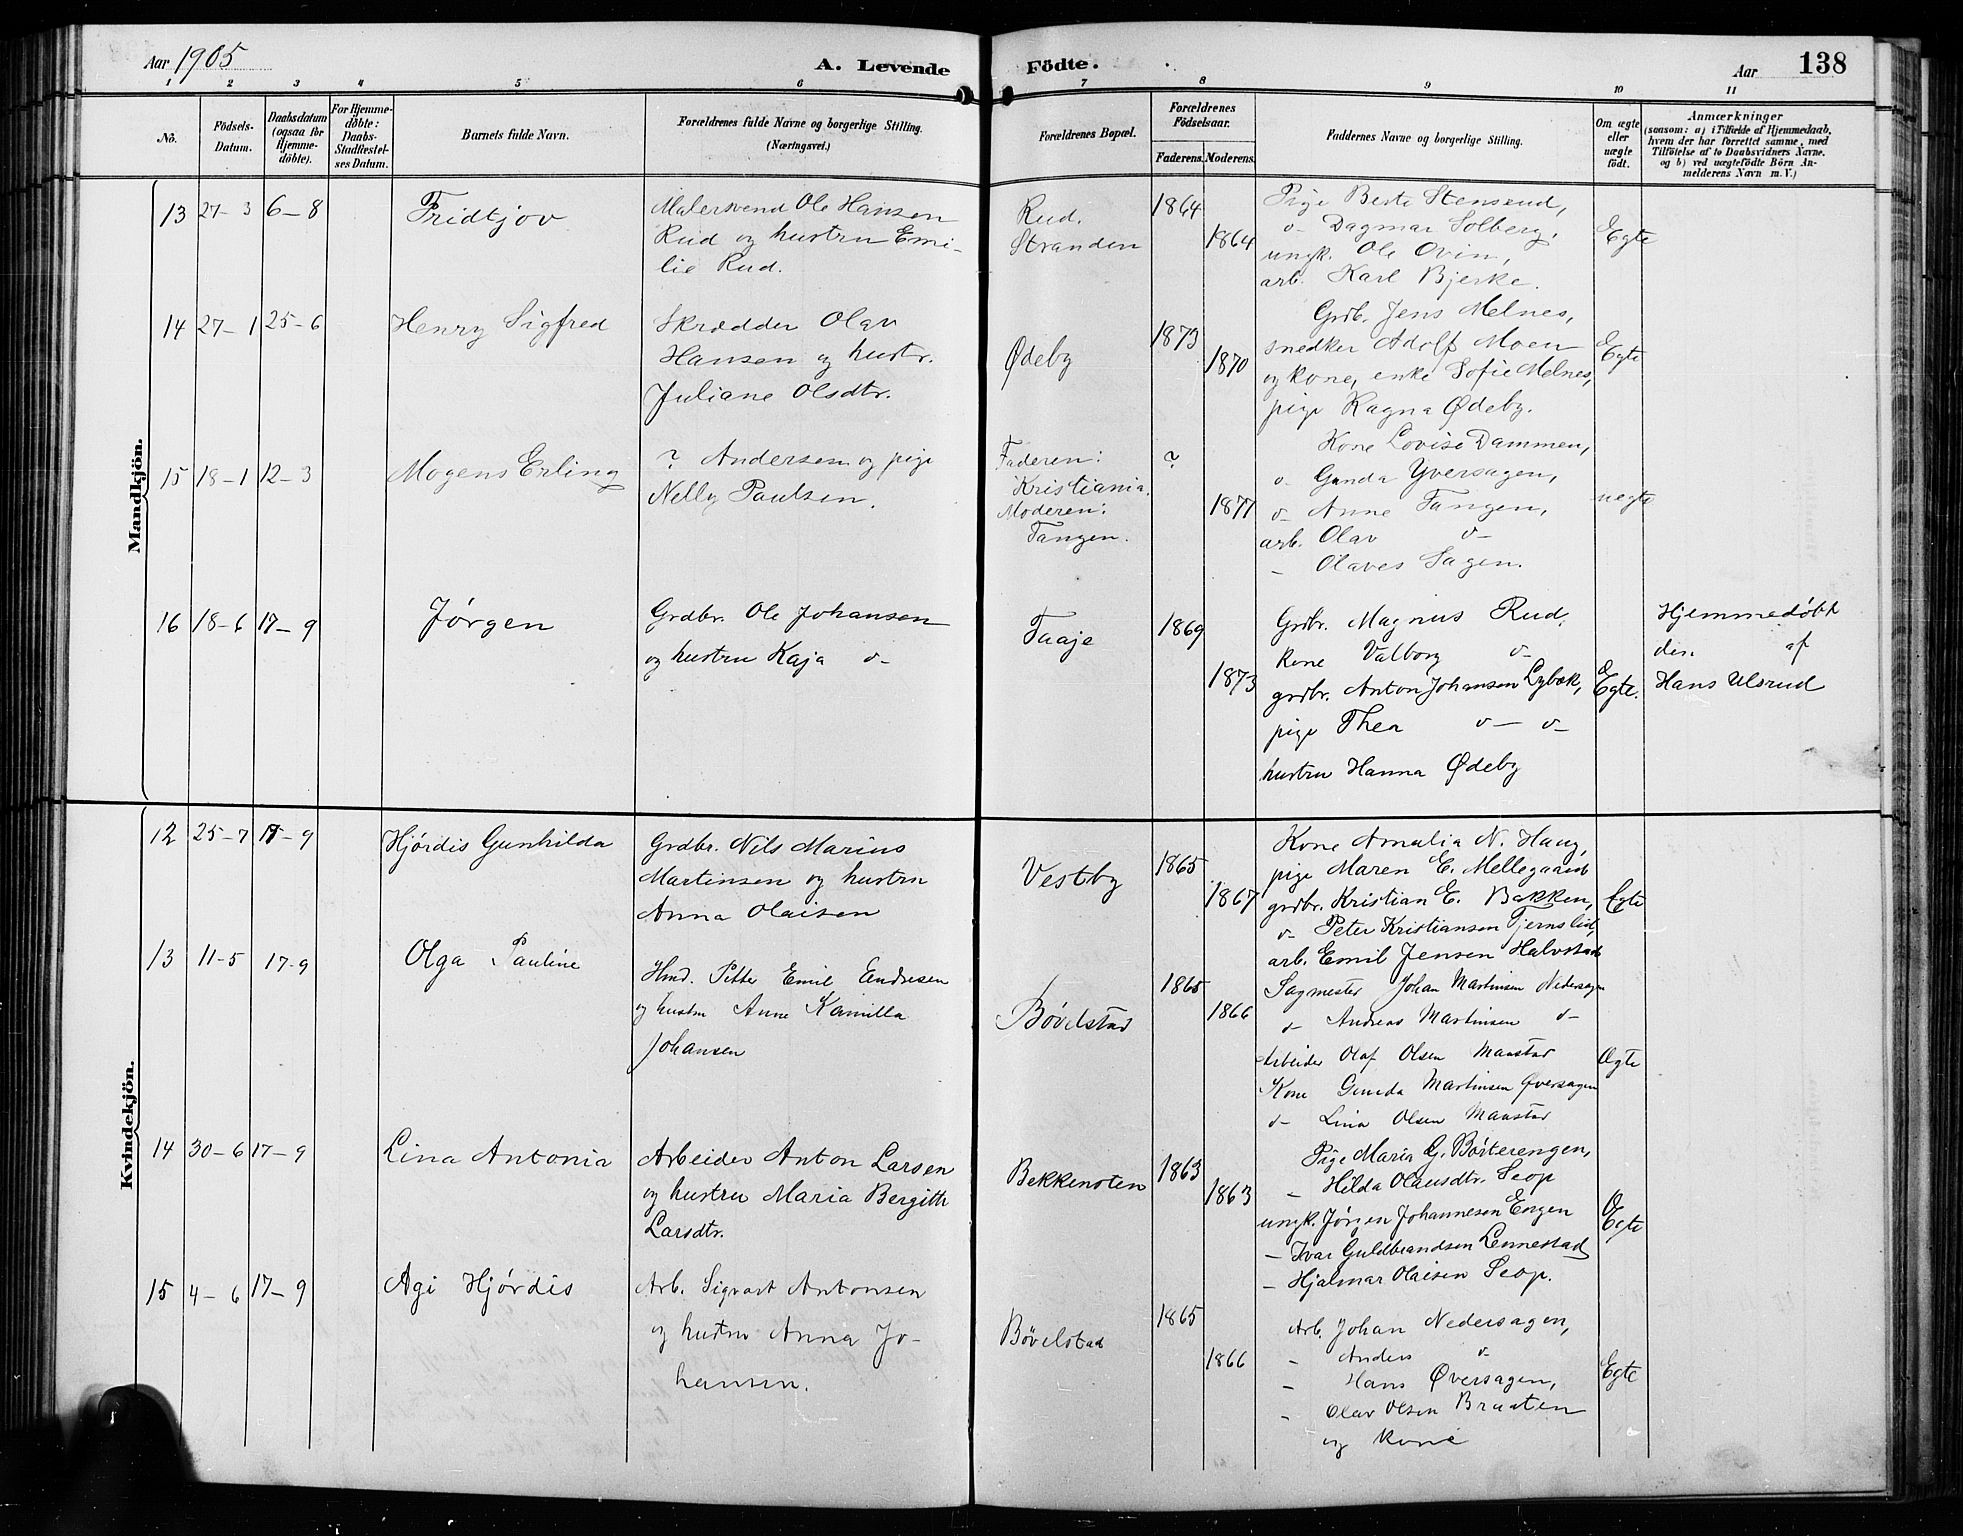 Aar 1905
A. Levende Födte.
Aar 138
1 2 3 4 5 6 7 8 9 10 11
No.
Födsels-Datum.
Daabsdatum (ogsaa for Hjemme-döbte).
For Hjemme-döbte: Daabs-Stadfæstel-ses Datum.
Barnets fulde Navn.
Forældrenes fulde Navne og borgerlige Stilling. (Næringsvei.)
Forældrenes Bopæl.
Forældrenes Födselsaar.
Faderens. Moderens.
Faddernes Navne og borgerlige Stilling.
Om ægte eller uægte födt.
Anmærkninger
(saasom: a) i Tilfælde af Hjemmedaab,
hvem der har forrettet samme, med
Tilföielse af to Daabsvidners Navne,
og b) ved uægtefödte Börn An-
melderens Navn m. V.)
Mandkjön.
13 27-3 6-8 Fridtjov
Malersvend Ole Hansen
Rud og hustru Emi-
lie Rud.
Rud.
Stranden
1864
1864
Pige Berte Stensrud,
v- Dagmar Solberg,
ungk. Ole Ovin,
arb. Karl Bjerke.
Egte
14 27-1 25-6 Henry Sigfred
Skrædder Olav
Hansen og hustr.
Juliane Olsdtr.
Ødeby
1873
1870
Grdb. Jens Melnes,
snedker Adolf Moen
og kone, enke Sofie Melnes,
pige Ragna Ødeby.
Egte
15 18-1 12-3 Mogens Erling
? Andersen og pige
Nelly Paulsen.
Faderen:
Kristiania.
Moderen:
Tangen.
?
1877
Kone Lovise Dammen,
v- Gunda Yversagen,
v- Anne Tangen,
arb. Olav v-
- Olaves Sagen.
uegte
16 18-6 17-9 Jørgen
Grdbr. Ole Johansen
og hustru Kaja v-
Taaje
1869
1873
Grdbr. Magnus Rud,
kone Valborg v-
grdbr. Anton Johansen Lybæk,
pige Thea v- v-
hustru Hanna Ødeby
Egte.
Hjemmedøbt
af
Hans Ulsrud
Kvindekjön.
12 25-7 17-9 Hjørdis Gunhilda
Grdbr. Nils Marius
Martinsen og hustru
Anna Olaisen
Vestby
1865
1867
Kone Amalia N. Haug,
pige Maren E. Mellegaard
grdbr. Kristian E. Bakken,
v- Peter Kristiansen Tjernslid,
arb. Emil Jensen Halvstad
Egte
13 11-5 17-9 Olga Pauline
Hmd. Petter Emil Endresen
og hustru Anne Kamilla
Johansen
Bøvelstad
1865
1866
Sagmester Johan Martinsen Nedersagen
v- Andreas Martinsen v-
Arbeider Olaf Olsen Maastad
Kone Gunda Martinsen Øversagen
v- Lina Olsen Maastad
Ægte
14 30-6 17-9 Lina Antonia
Arbeider Anton Larsen
og hustru Maria Bergitte
Larsdtr.
Bekkenoten
1863
1863
Pige Maria G. Børterengen,
- Hilda Olausdtr. Seop
ungk. Jørgen Johannesen Engen
- Ivar Guldbrandsen Lennestad
- Hjalmar Olaisen Seop.
Egte
15 4-6 17-9 Agi Hjørdis
Arb. Sigvart Antonsen
og hustru Anna Jo-
hansen.
Bøvelstad
1865
1866
Arb. Johan Nedersagen,
- Anders v-
- Hans Øversagen,
- Olav Olsen Braaten
og kone
Egte